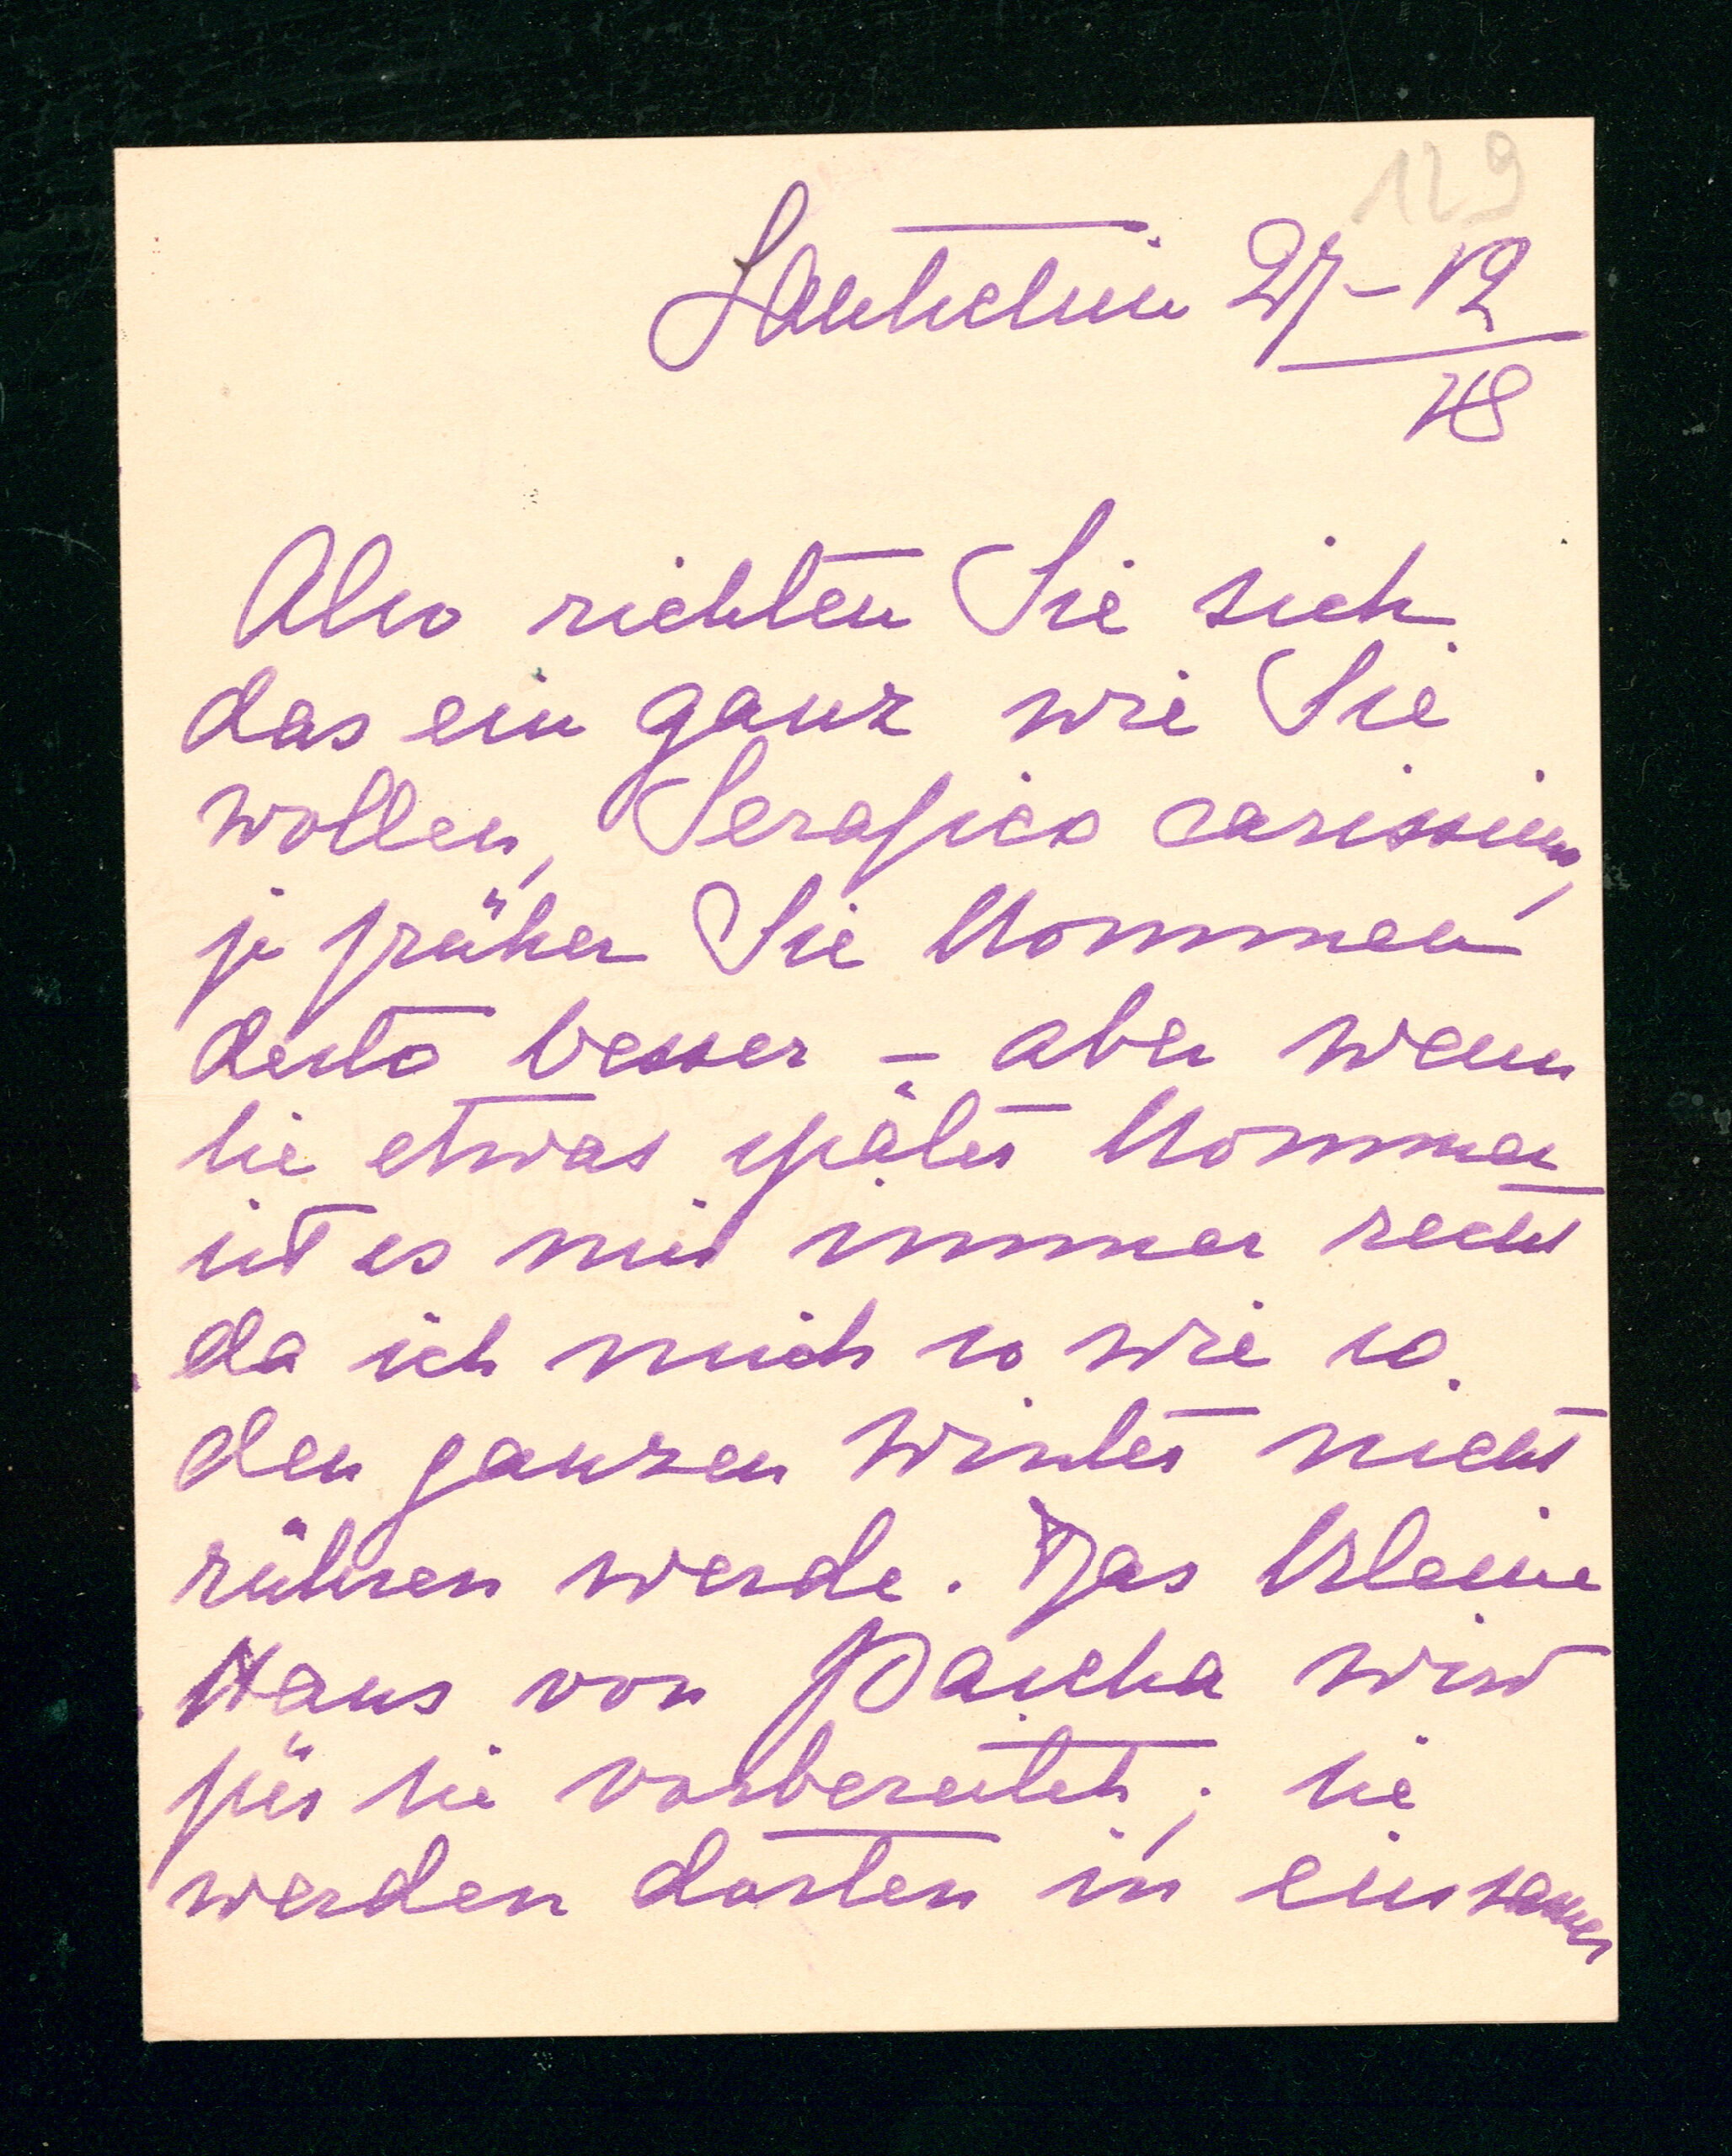 129
Lautschin 27-12
18
Also richten Sie sich
das ein ganz wie Sie
wollen, Serafico carissimo,
je früher Sie kommen
desto besser – aber wenn
sie etwas später kommen
ist es mir immer recht
da ich mich so wie so
den ganzen Winter nicht
rühren werde. Das kleine
Haus von Pascha wird
für sie vorbereitet; sie
werden dorten in einsamer